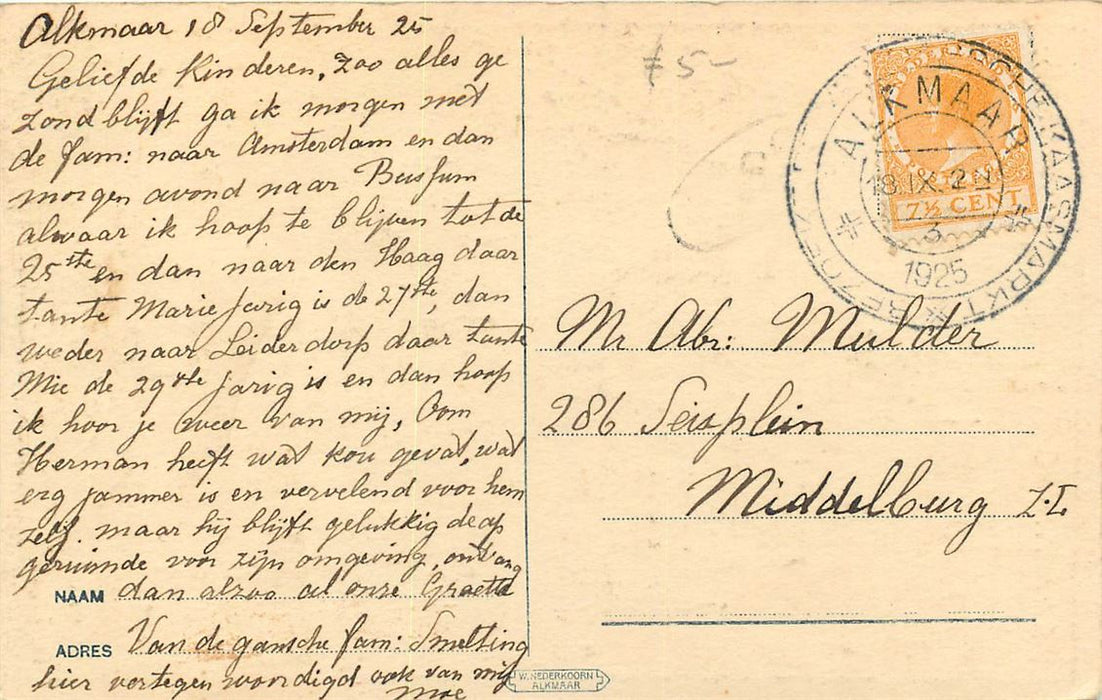 Alkmaar 18 September 25
Geliefde Kinderen, zoo alles ge
zond blijft ga ik morgen met
de fam: naar Amsterdam en dan
morgen avond naar Bussum
alwaar ik hoop te blijven tot de
25ste en dan naar den Haag daar
tante Marie jarig is de 27ste, dan
weder naar Leiderdorp daar tante
Mie de 29ste jarig is en dan hoop
ik hoor je weer van mij, Oom
Herman heeft wat kou gevat, wat
erg jammer is en vervelend voor hem
zelf. maar hij blijft gelukkig de op
geruimde voor zijn omgeving, ontvang
NAAM dan alzoo al onze Groette
ADRES Van de gansche fam: Smelting
hier vertegen woordigd ook van mij
Moe
W. NEDERKOORN
ALKMAAR
f 5-
ALKMAAR
18.IX.2 N
3
1925
KAASMARKT
7½ CENT
Mr Abr: Mulder
286 Seisplein
Middelburg Z.I.